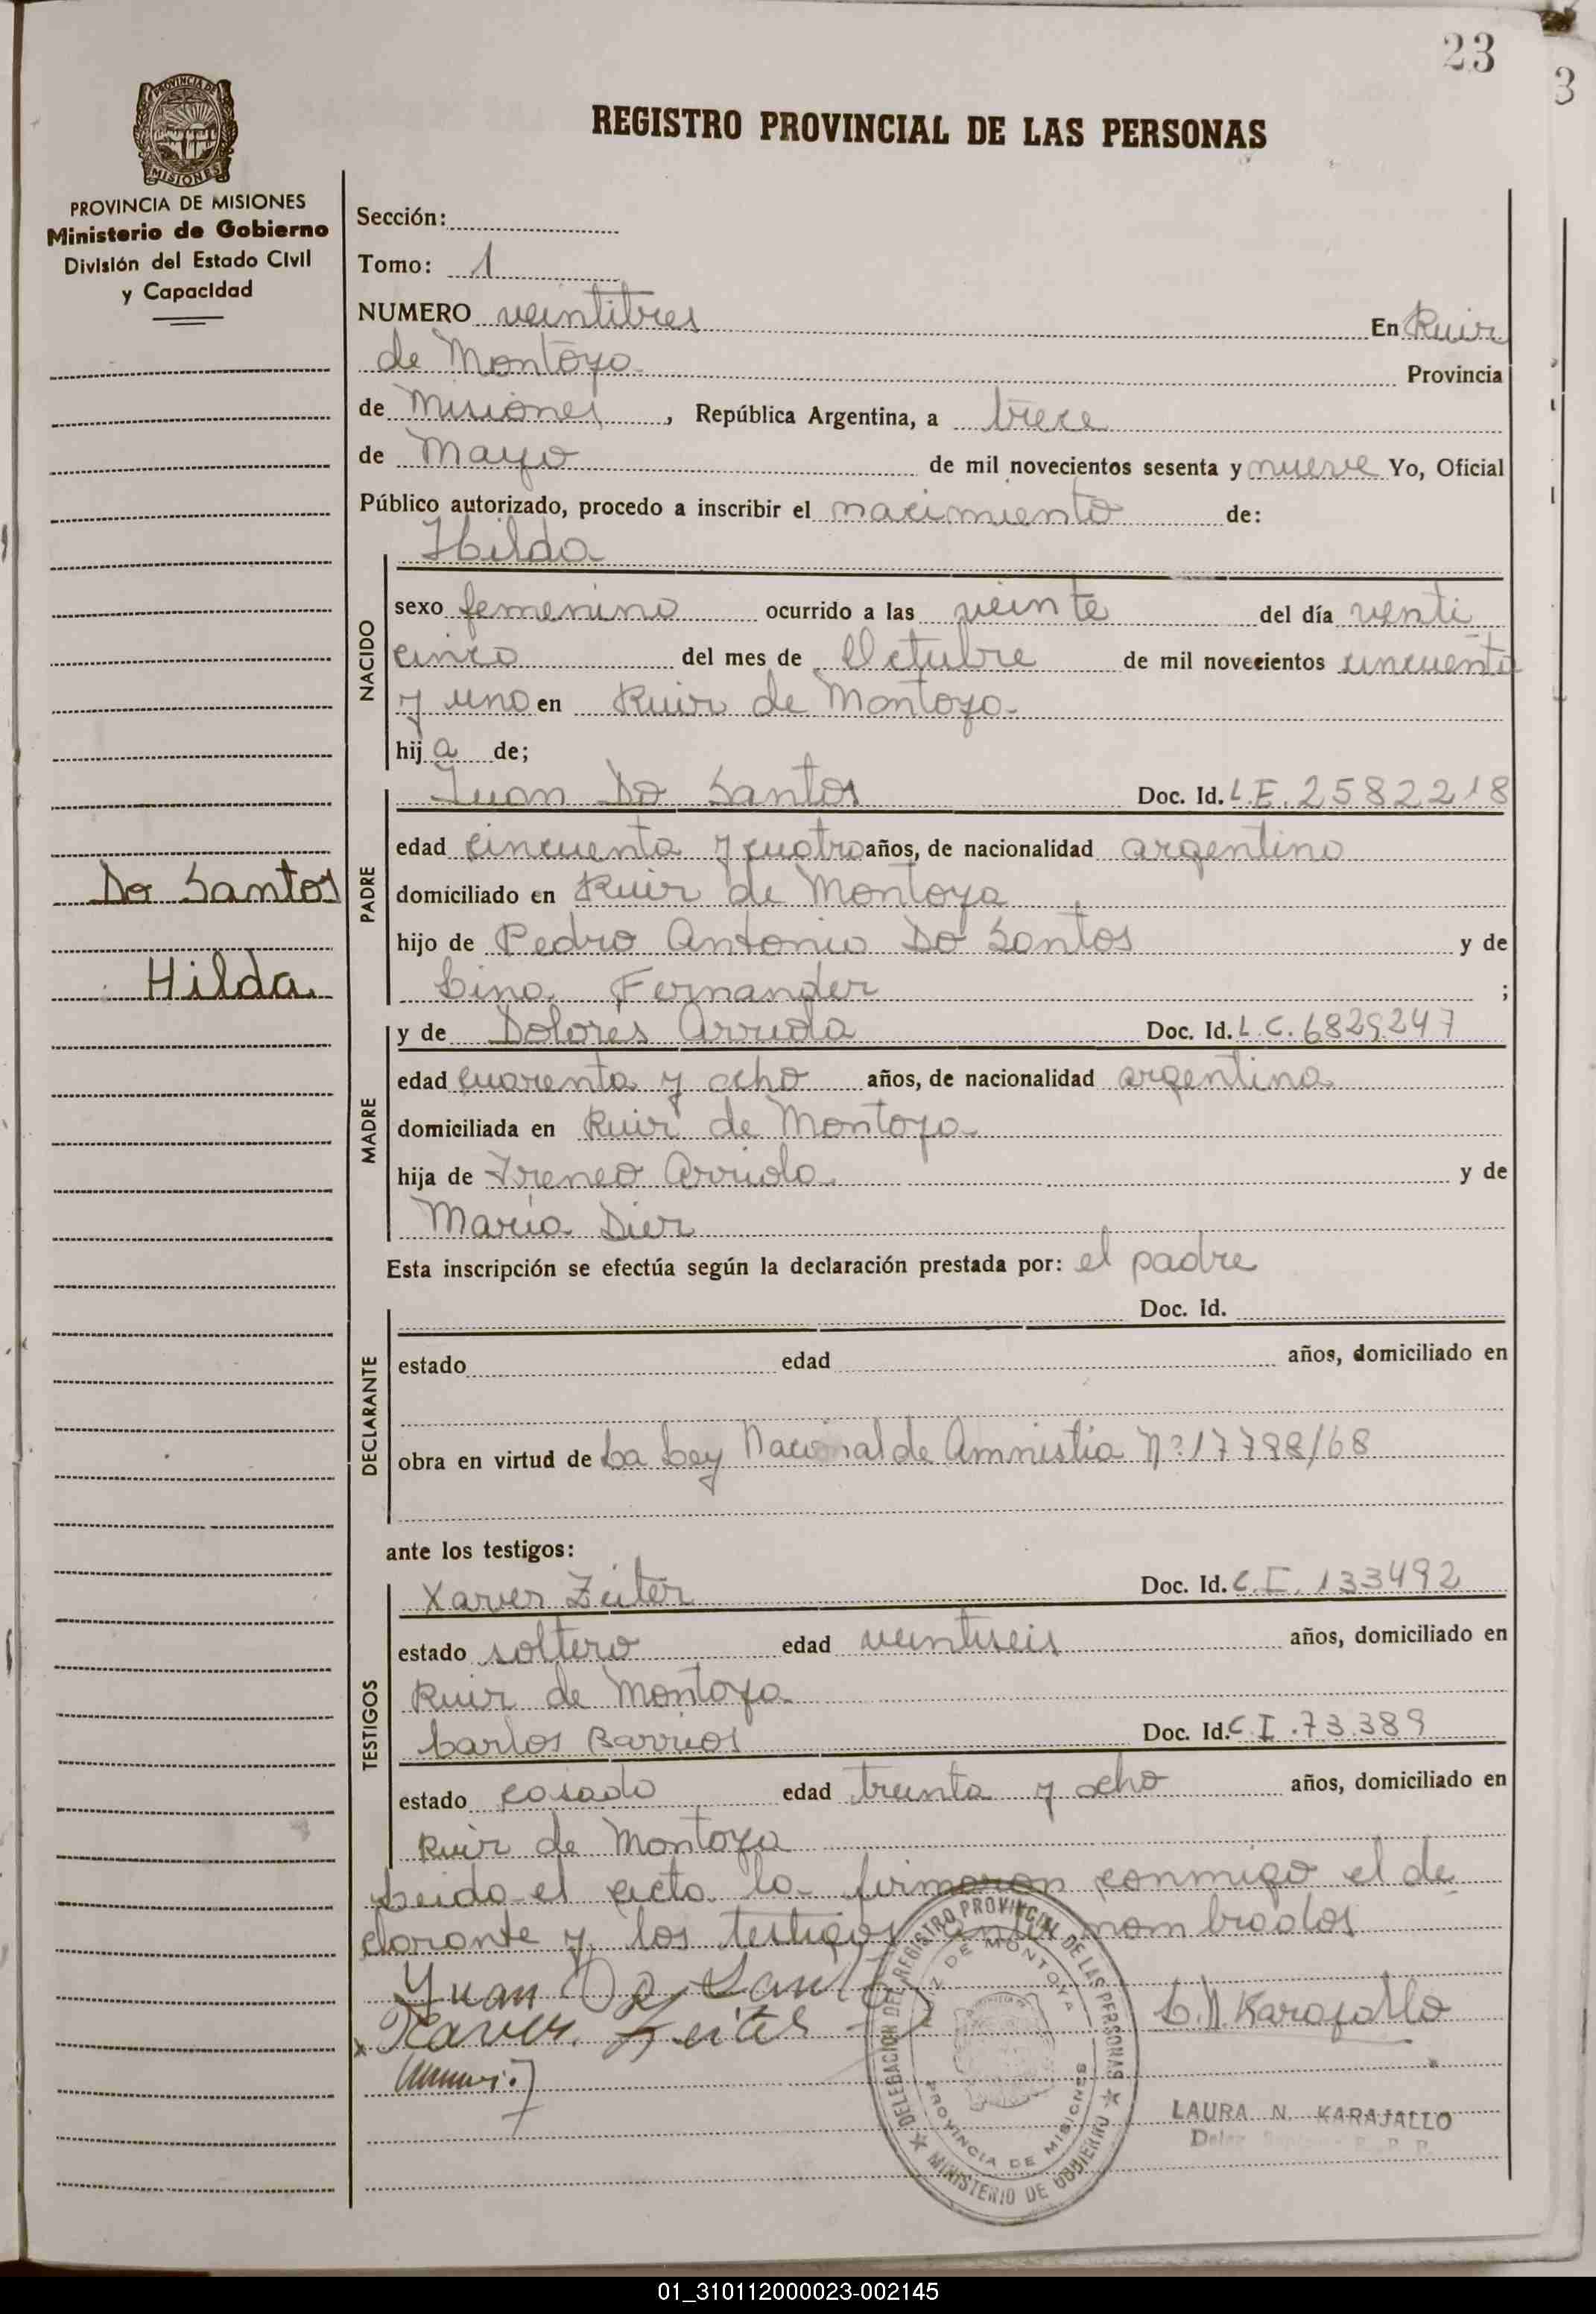 23
3
PROVINCIA DE
MISIONES
REGISTRO PROVINCIAL DE LAS PERSONAS
PROVINCIA DE MISIONES
Ministerio de Gobierno
División del Estado Civil
y Capacidad
Sección:
Tomo: 1
NUMERO veintitres En Ruiz
de Montoya Provincia
de Misiones, República Argentina, a trece
de Mayo de mil novecientos sesenta y nueve Yo, Oficial
Público autorizado, procedo a inscribir el nacimiento de:
Hilda
NACIDO
sexo femenino ocurrido a las veinte del día venti
cinco del mes de Octubre de mil novecientos cincuenta
y uno en Ruiz de Montoya
hija de;
Juan Do Santos Doc. Id. L.E. 2582218
PADRE
edad cincuenta y cuatro años, de nacionalidad argentino
Do Santos
domiciliado en Ruiz de Montoya
hijo de Pedro Antonio Do Santos y de
Hilda
Lina Fernandez ;
y de Dolores Arriola Doc. Id. L.C. 6829247
MADRE
edad cuarenta y ocho años, de nacionalidad argentina
domiciliada en Ruiz de Montoya
hija de Ireneo Arriola y de
María Diez
Esta inscripción se efectúa según la declaración prestada por: el padre
Doc. Id.
DECLARANTE
estado edad años, domiciliado en
obra en virtud de La Ley Nacional de Amnistia Nº 17798/68
ante los testigos:
TESTIGOS
Xaver Zeiter Doc. Id. C.I. 133492
estado soltero edad veintiseis años, domiciliado en
Ruiz de Montoya
Carlos Barrios Doc. Id. C.I. 73.389
estado casado edad treinta y ocho años, domiciliado en
Ruiz de Montoya
Leida el acta la firmaron conmigo el de
clarante y los testigos antes nombrados
Yuan Do Santo
Xaver Zeiter
L.N. Karajallo
DELEGACION DEL REGISTRO PROVINCIAL DE LAS PERSONAS
MINISTERIO DE GOBIERNO
RUIZ DE MONTOYA
PROVINCIA DE MISIONES
LAURA N. KARAJALLO
01_310112000023-002145